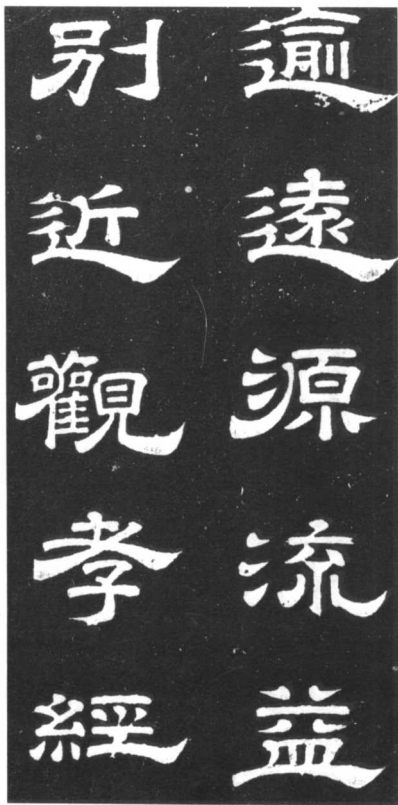 逾遠源流益
別近觀孝經